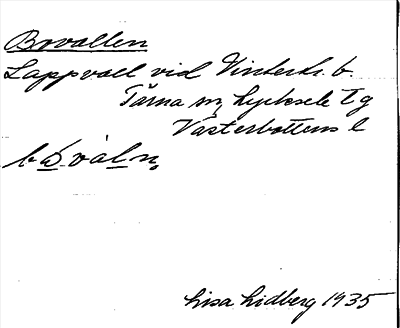 Bovallen
Lappvall vid Vinterh. b.
Tärna sn, Lycksele tg
Västerbottens l
bò valn,
Lisa Lidberg 1935